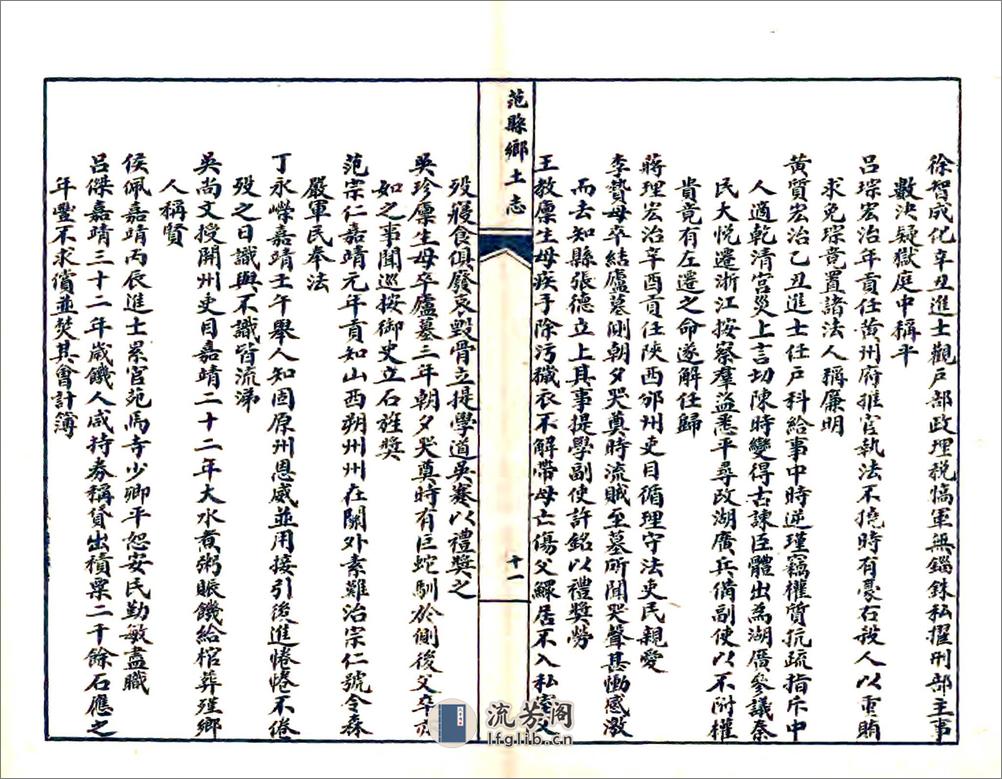 徐智成化辛丑進士觀戶部政理稅犒軍無錙銖私擢刑部主事
數決疑獄庭中稱平
呂琮宏治年貢任黄州府推官執法不撓時有豪右殺人以重賄
求免琮竟置諸法人稱廉明
黄質宏治乙丑進士任戶科給事中時逆瑾竊權質抗疏指斥中
人適乾清宮災上言切陳時變得古諫臣體出為湖廣參議奈
民大悅遷浙江按察羣盜悉平尋改湖廣兵備副使以不附權
貴竟有左遷之命遂解任歸
蔣理宏治辛酉貢任陝西邠州吏目循理守法吏民親愛
李贄母卒結廬墓側朝夕哭奠時流賊至墓所聞哭聲甚慟感激
而去知縣張德立上其事提學副使許銘以禮獎勞
王教廪生母疾手除污穢衣不解帶母亡傷父鰥居不入私室父
范縣鄉土志
十一
殁寢食俱廢哀毀骨立提學道吳蹇以禮獎之
吳珍廪生母卒廬墓三年朝夕哭奠時有巨蛇馴於側後父卒亦
如之事聞巡按御史立石旌獎
范宗仁嘉靖元年貢知山西朔州州在關外素難治宗仁號令森
嚴軍民奉法
丁永嶸嘉靖壬午舉人知固原州恩威並用接引後進惓惓不倦
殁之日識與不識皆流涕
吳尚文授開州吏目嘉靖二十二年大水煮粥賑饑給棺葬殣鄉
人稱賢
侯佩嘉靖丙辰進士累官苑馬寺少卿平恕安民勤敏盡職
呂傑嘉靖三十二年歲饑人咸持券稱貸出積粟二千餘石應之
年豐不求償並焚其會計簿
流芳阁
lfglib.cn